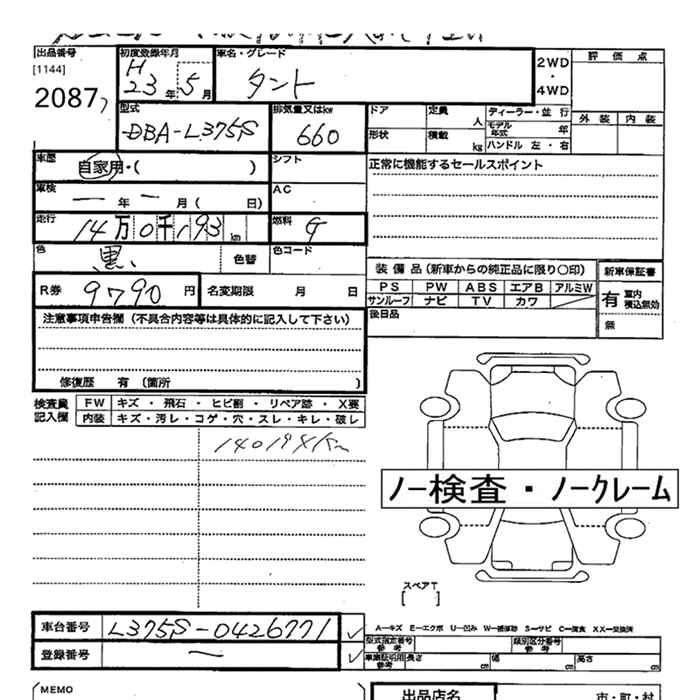 出品番号
[1144]
20877
初度登録年月
H
23年5月
車名・グレード
タント
2WD
・
4WD
評価点
外装 内装
型式
DBA-L375S
排気量又はkw
660
ドア
定員 人
ディーラー・並行
モデル年式 年
形状
積載 kg
ハンドル 左・右
車歴
自家用・( )
シフト
正常に機能するセールスポイント
車検
ー年ー月(日)
AC
走行
14万0千193km
燃料
G
色
黒
色替
色コード
装備品(新車からの純正品に限り〇印)
新車保証書
PS PW ABS エアB アルミW
サンルーフ ナビ TV カワ
有 車内積込無効
無
後日品
R券
9790円
名変期限 月 日
注意事項申告欄(不具合内容等は具体的に記入して下さい)
修復歴 有(箇所 )
検査員記入欄
FW キズ・飛石・ヒビ割・リペア跡・X要
内装 キズ・汚レ・コゲ・穴・スレ・キレ・破レ
ノー検査・ノークレーム
スペアT
[ ]
車台番号
L375S-0426771
✓
登録番号
ー
✓
A−キズ E−エクボ U−凹み W−補修跡 S−サビ C−腐食 XX−交換済
型式指定番号 参考
類別区分番号 参考
車庫証明用参考 長さ cm 幅 cm 高さ cm
MEMO
出品店名
市・町・村